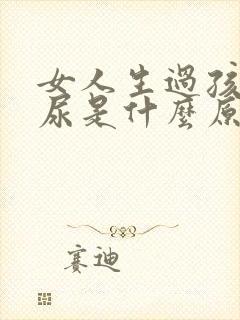 女人生過孩
尿是什麼原
賽迪